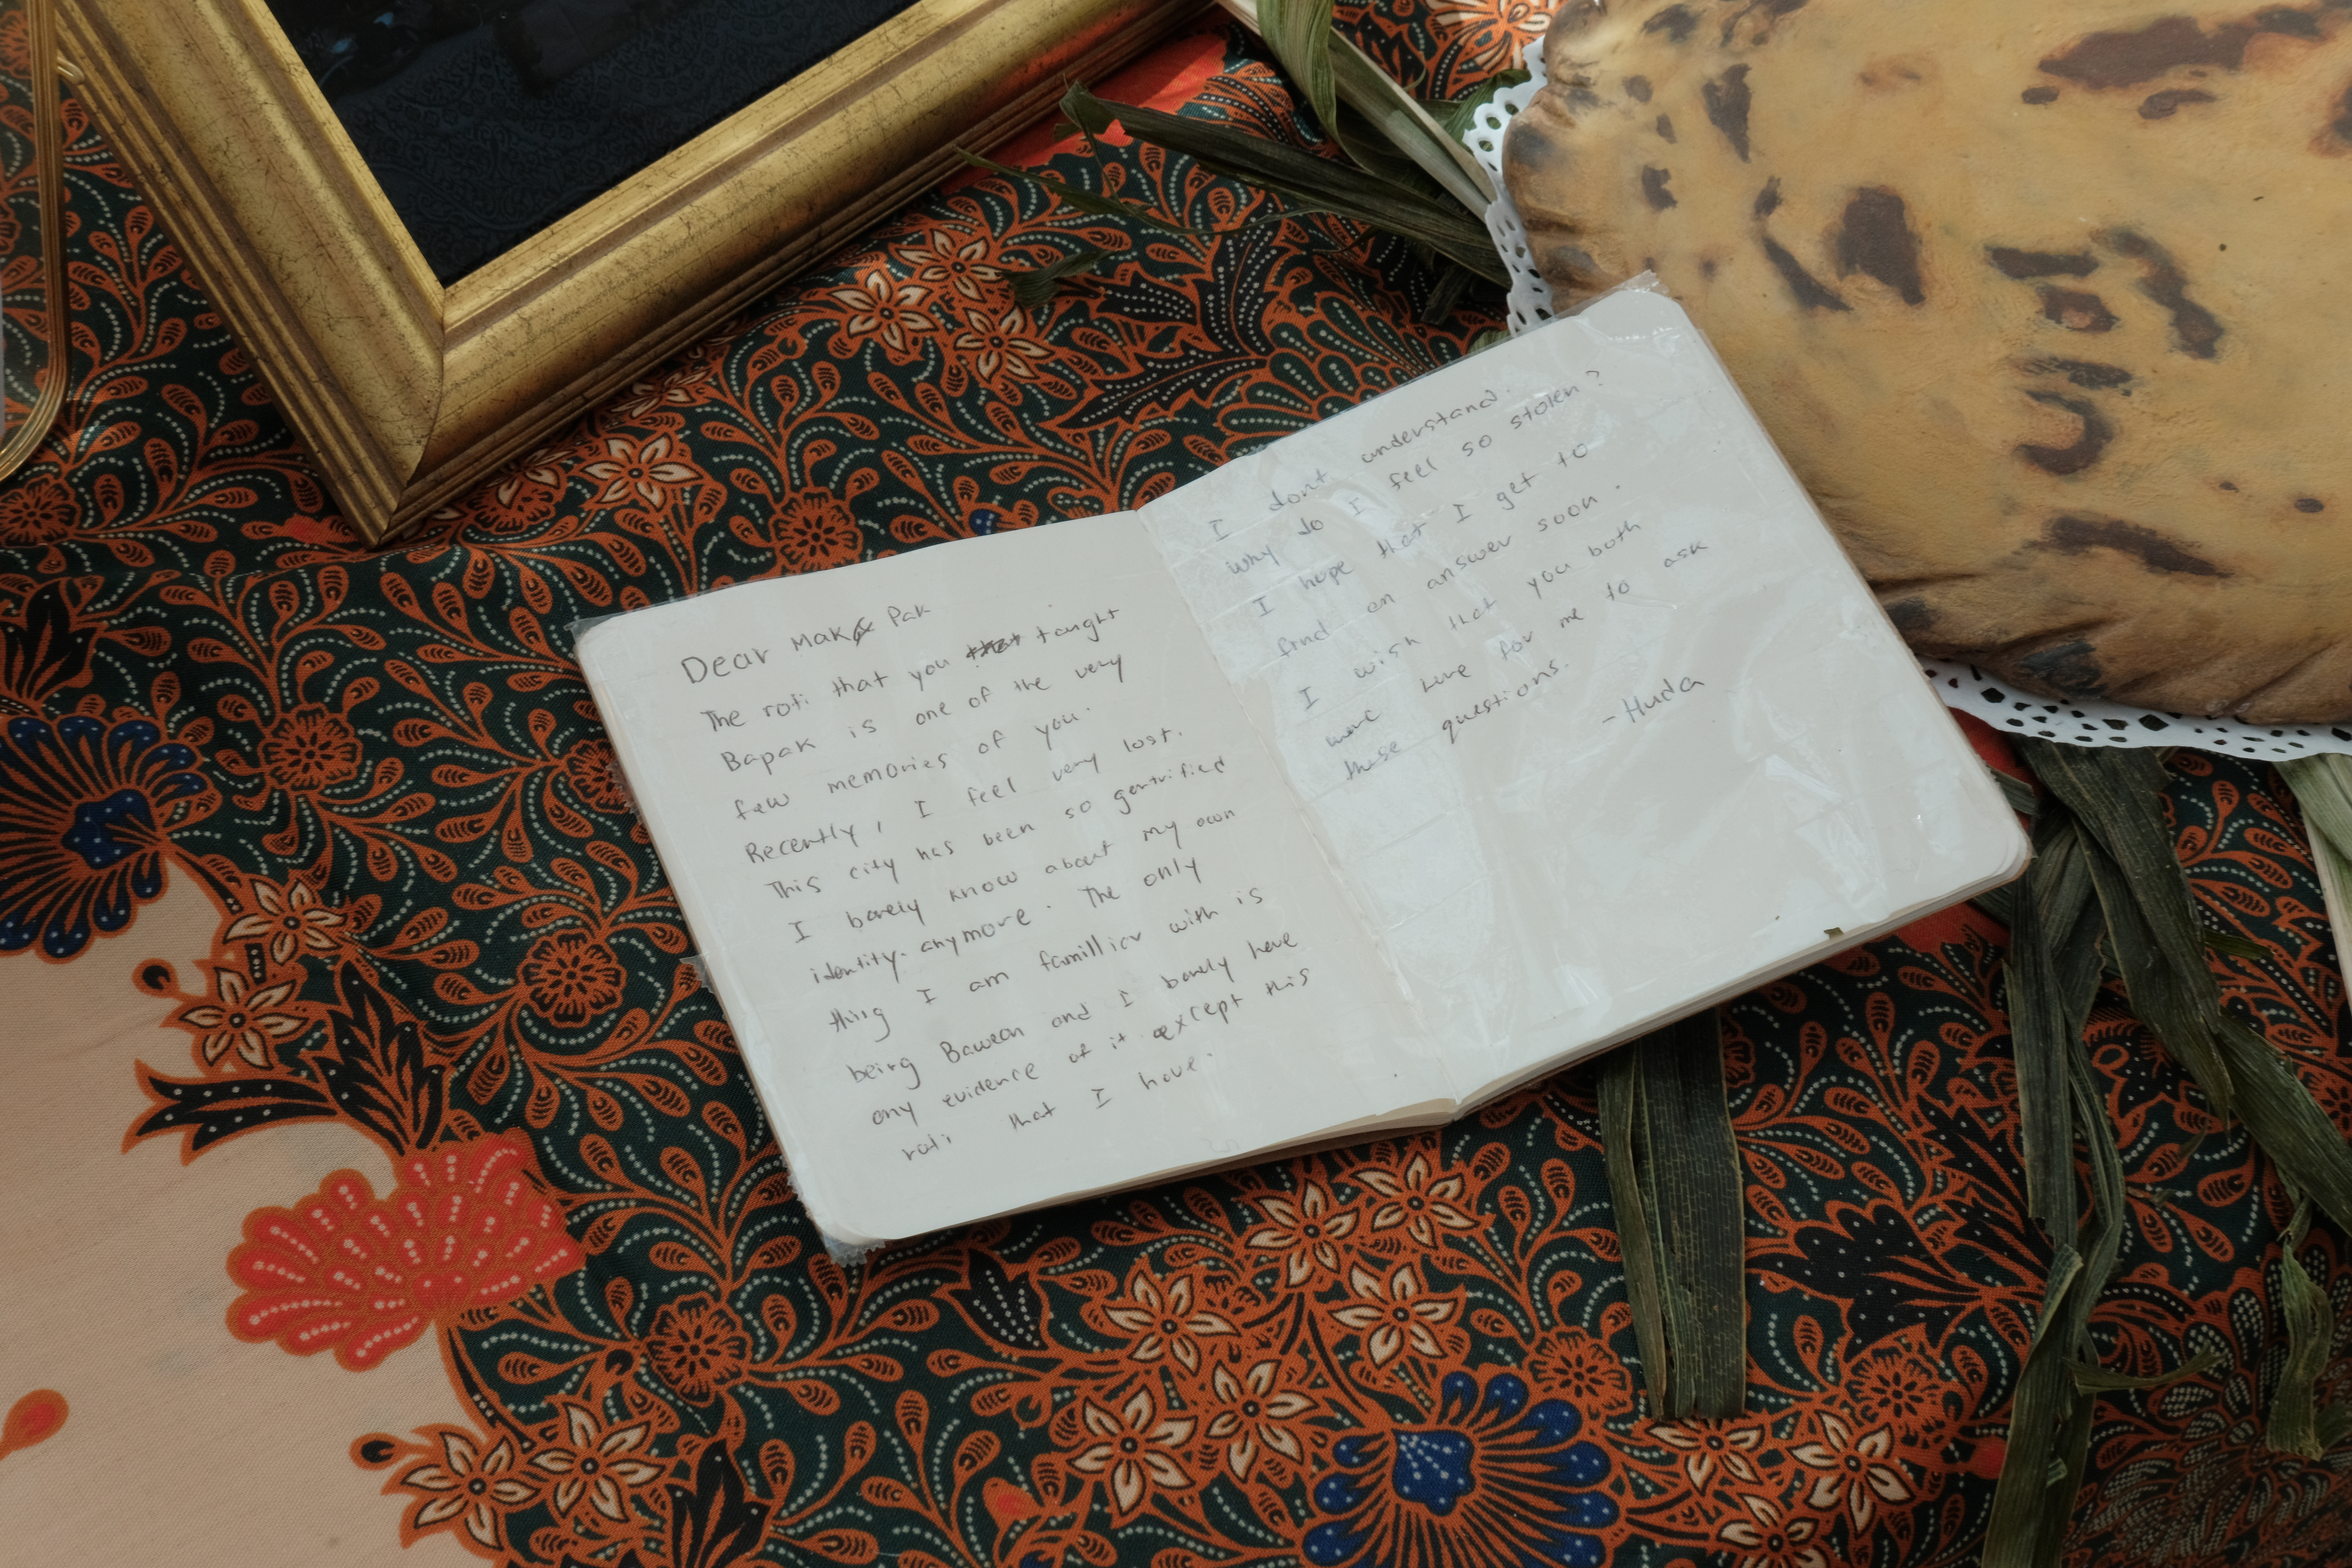 Dear Mak & Pak
The roti that you that taught
Bapak is one of the very
few memories of you.
Recently, I feel very lost.
This city has been so gentrified
I barely know about my own
identity. anymore. The only
thing I am famillier with is
being Bawean and I barely have
any evidence of it except this
roti that I have.
I dont understand.
why do I feel so stolen?
I hope that I get to
find an answer soon.
I wish that you both
were here for me to ask
these questions.
- Huda